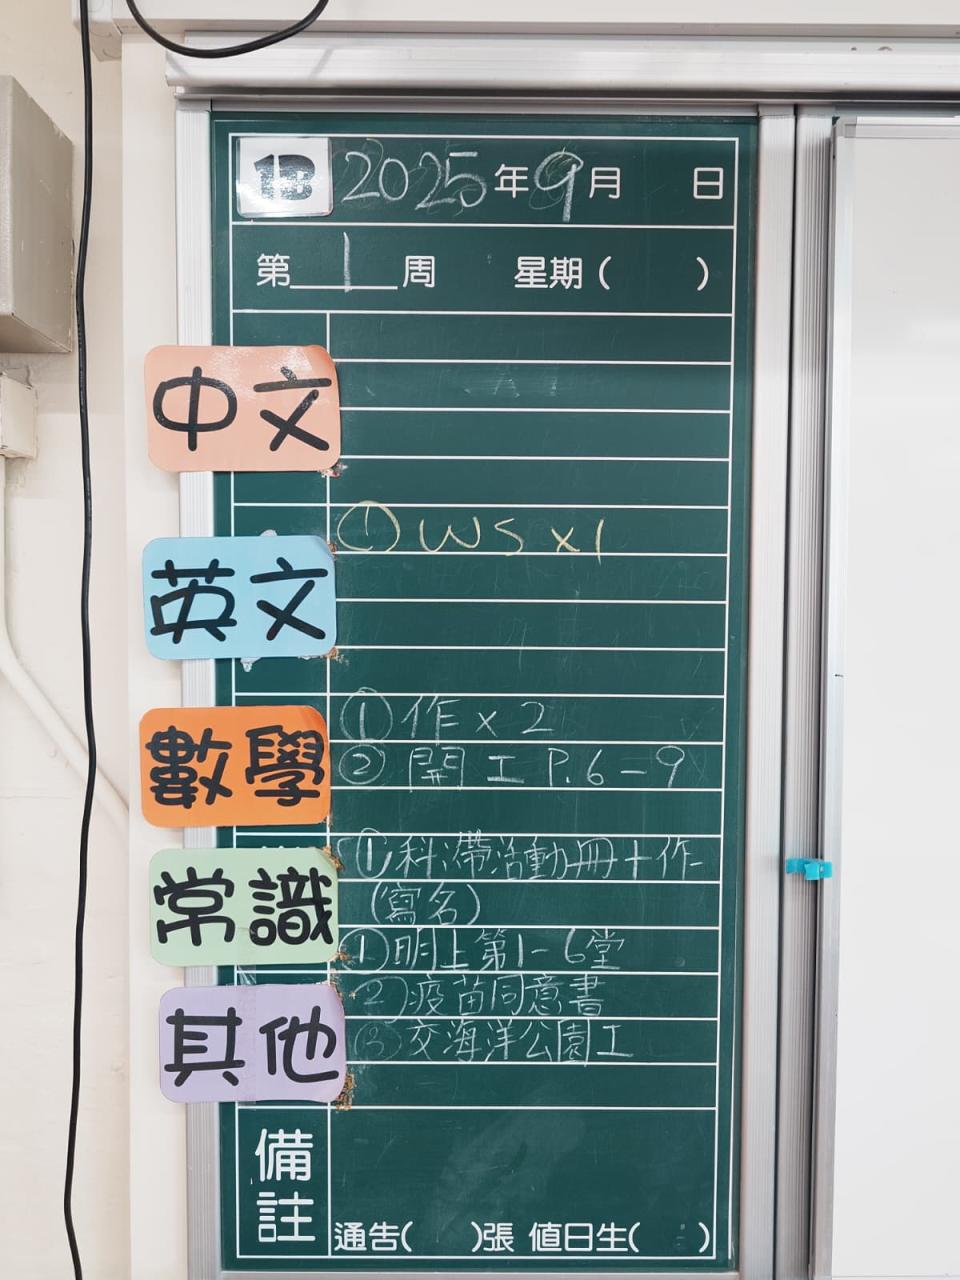 1B 2025年9月 日
第 1 周 星期( )
中文
① WS x 1
英文
① 作 x 2
② 開工 P.6-9
數學
① 科帶活動冊+作
(寫名)
常識
① 明上第1-6堂
② 疫苗同意書
③ 交海洋公園工
其他
備註
通告( )張 值日生( )